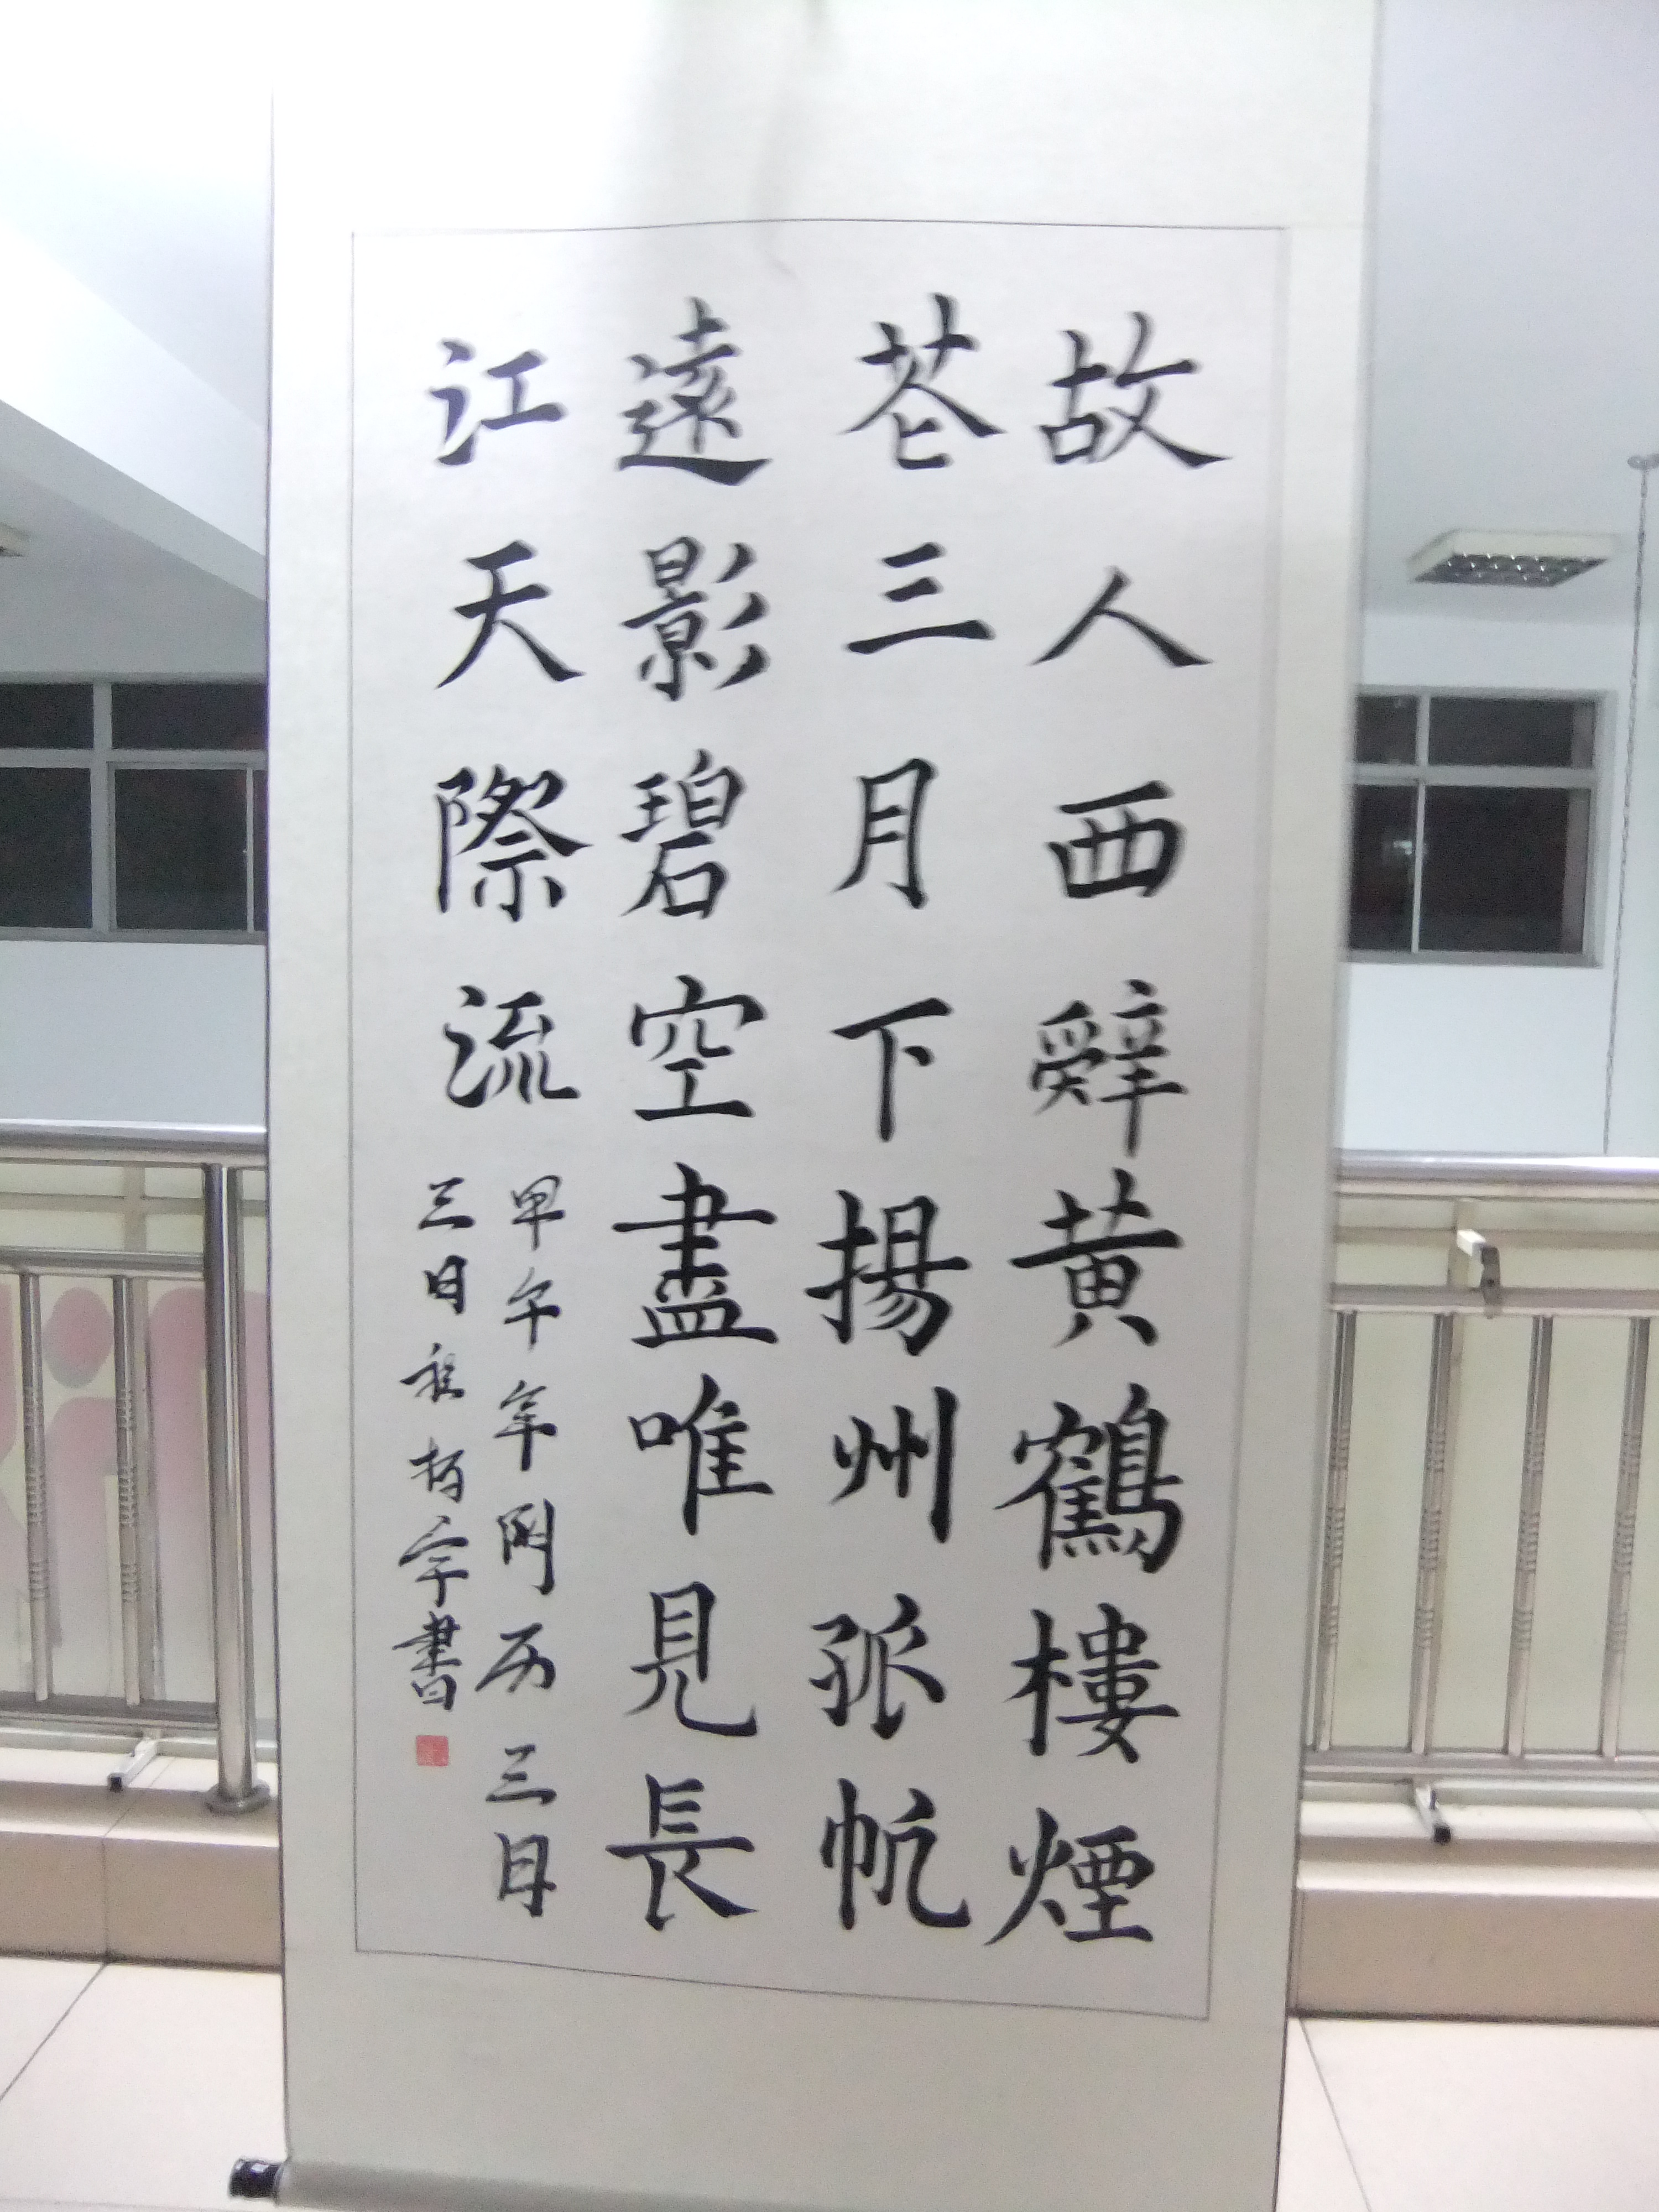 故人西辭黄鶴樓煙
花三月下揚州孤帆
遠影碧空盡唯見長
江天際流
甲午年閏历三月
三日 柏宇書